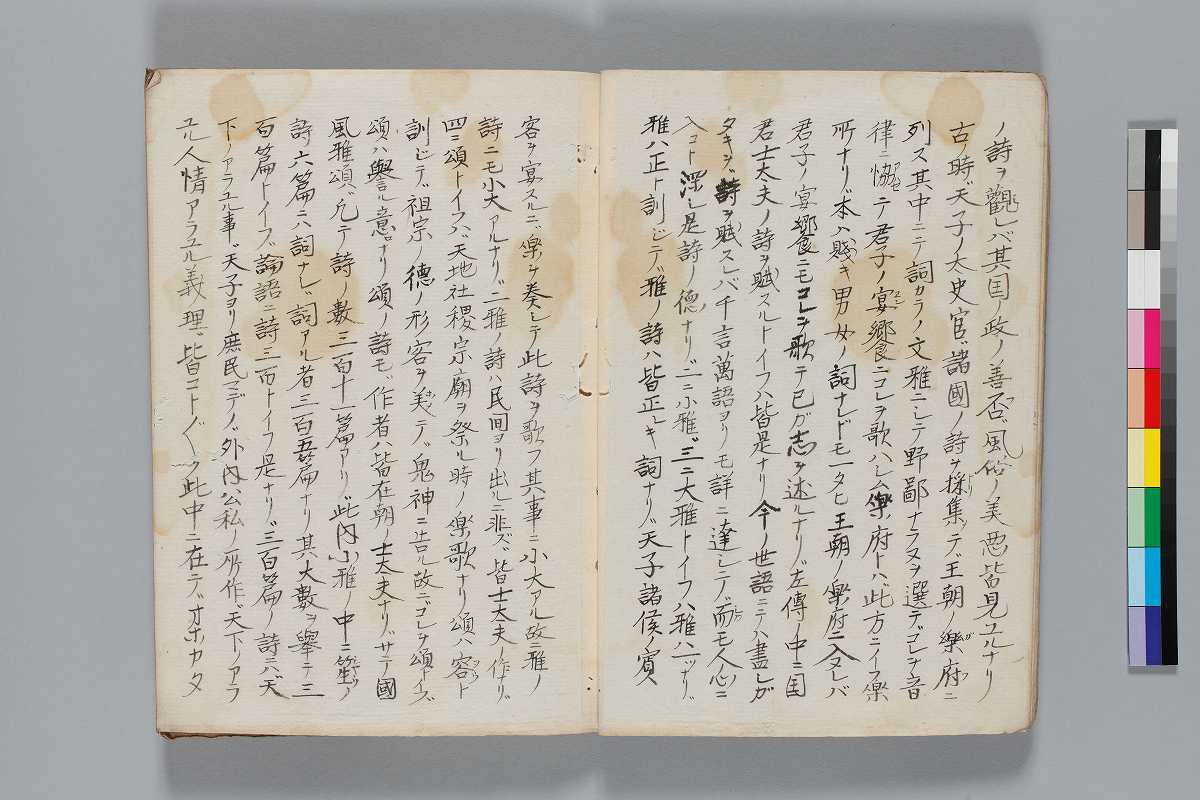 ノ詩ヲ觀レバ其国ノ政ノ善否風俗ノ美悪皆見ユルナリ
古ノ時天子ノ太史官諸國ノ詩ヲ採集シテ王朝ノ樂府ニ
列ス其中ニテ詞カラノ文雅ニシテ野鄙ナラヌヲ選テコレヲ音
律ニ恊セテ君子ノ宴饗ニコレヲ歌ハシム樂府トハ此方ニイフ楽
所ナリ本ハ賤キ男女ノ詞ナレドモ一タヒ王朝ノ樂府ニ入ヌレバ
君子ノ宴饗ニモコレヲ歌テ已ガ志ヲ述ルナリ左傳ノ中ニ国
君士大夫ノ詩ヲ賦スルトイフハ皆是ナリ今ノ世語ニテハ盡シガ
タキヲ詩ヲ賦スレバ千言萬語ヨリモ詳ニ達シテ而モ人心ニ
入コト深シ是詩ノ德ナリ二ニ小雅三ニ大雅トイフハ雅ハ一ツナリ
雅ハ正ト訓ジテ雅ノ詩ハ皆正シキ詞ナリ天子諸侯ノ賓
客ヲ宴スルニ樂ヲ奏シテ此詩ヲ歌フ其事ニ小大アル故雅ノ
詩ニモ小大アルナリ二雅ノ詩ハ民间ヨリ出ルニ非ズ皆士大夫ノ作ナリ
四ニ頌トイフハ天地社稷宗廟ヲ祭ル時ノ樂歌ナリ頌ハ容ト
訓ジテ祖宗ノ德ノ形容ヲ美テ鬼神ニ告ル故ニコレヲ頌トイフ
頌ハ譽ル意ナリ頌ノ詩モ作者ハ皆在朝ノ士大夫ナリサテ國
風雅頌凢テ詩ノ數三百十一篇アリ此内小雅ノ中ニ笙ノ
詩六篇ニハ詞ナシ詞アル者三百五篇ナリ其大數ヲ舉テ三
百篇トイフ論語ニ詩三百トイフ是ナリ三百篇ノ詩ニハ天
下ノアラユル事天子ヨリ庶民マデノ外内公私ノ所作天下ノアラ
ユル人情アラユル義理皆コトゴトク此中ニ在テオホカタ